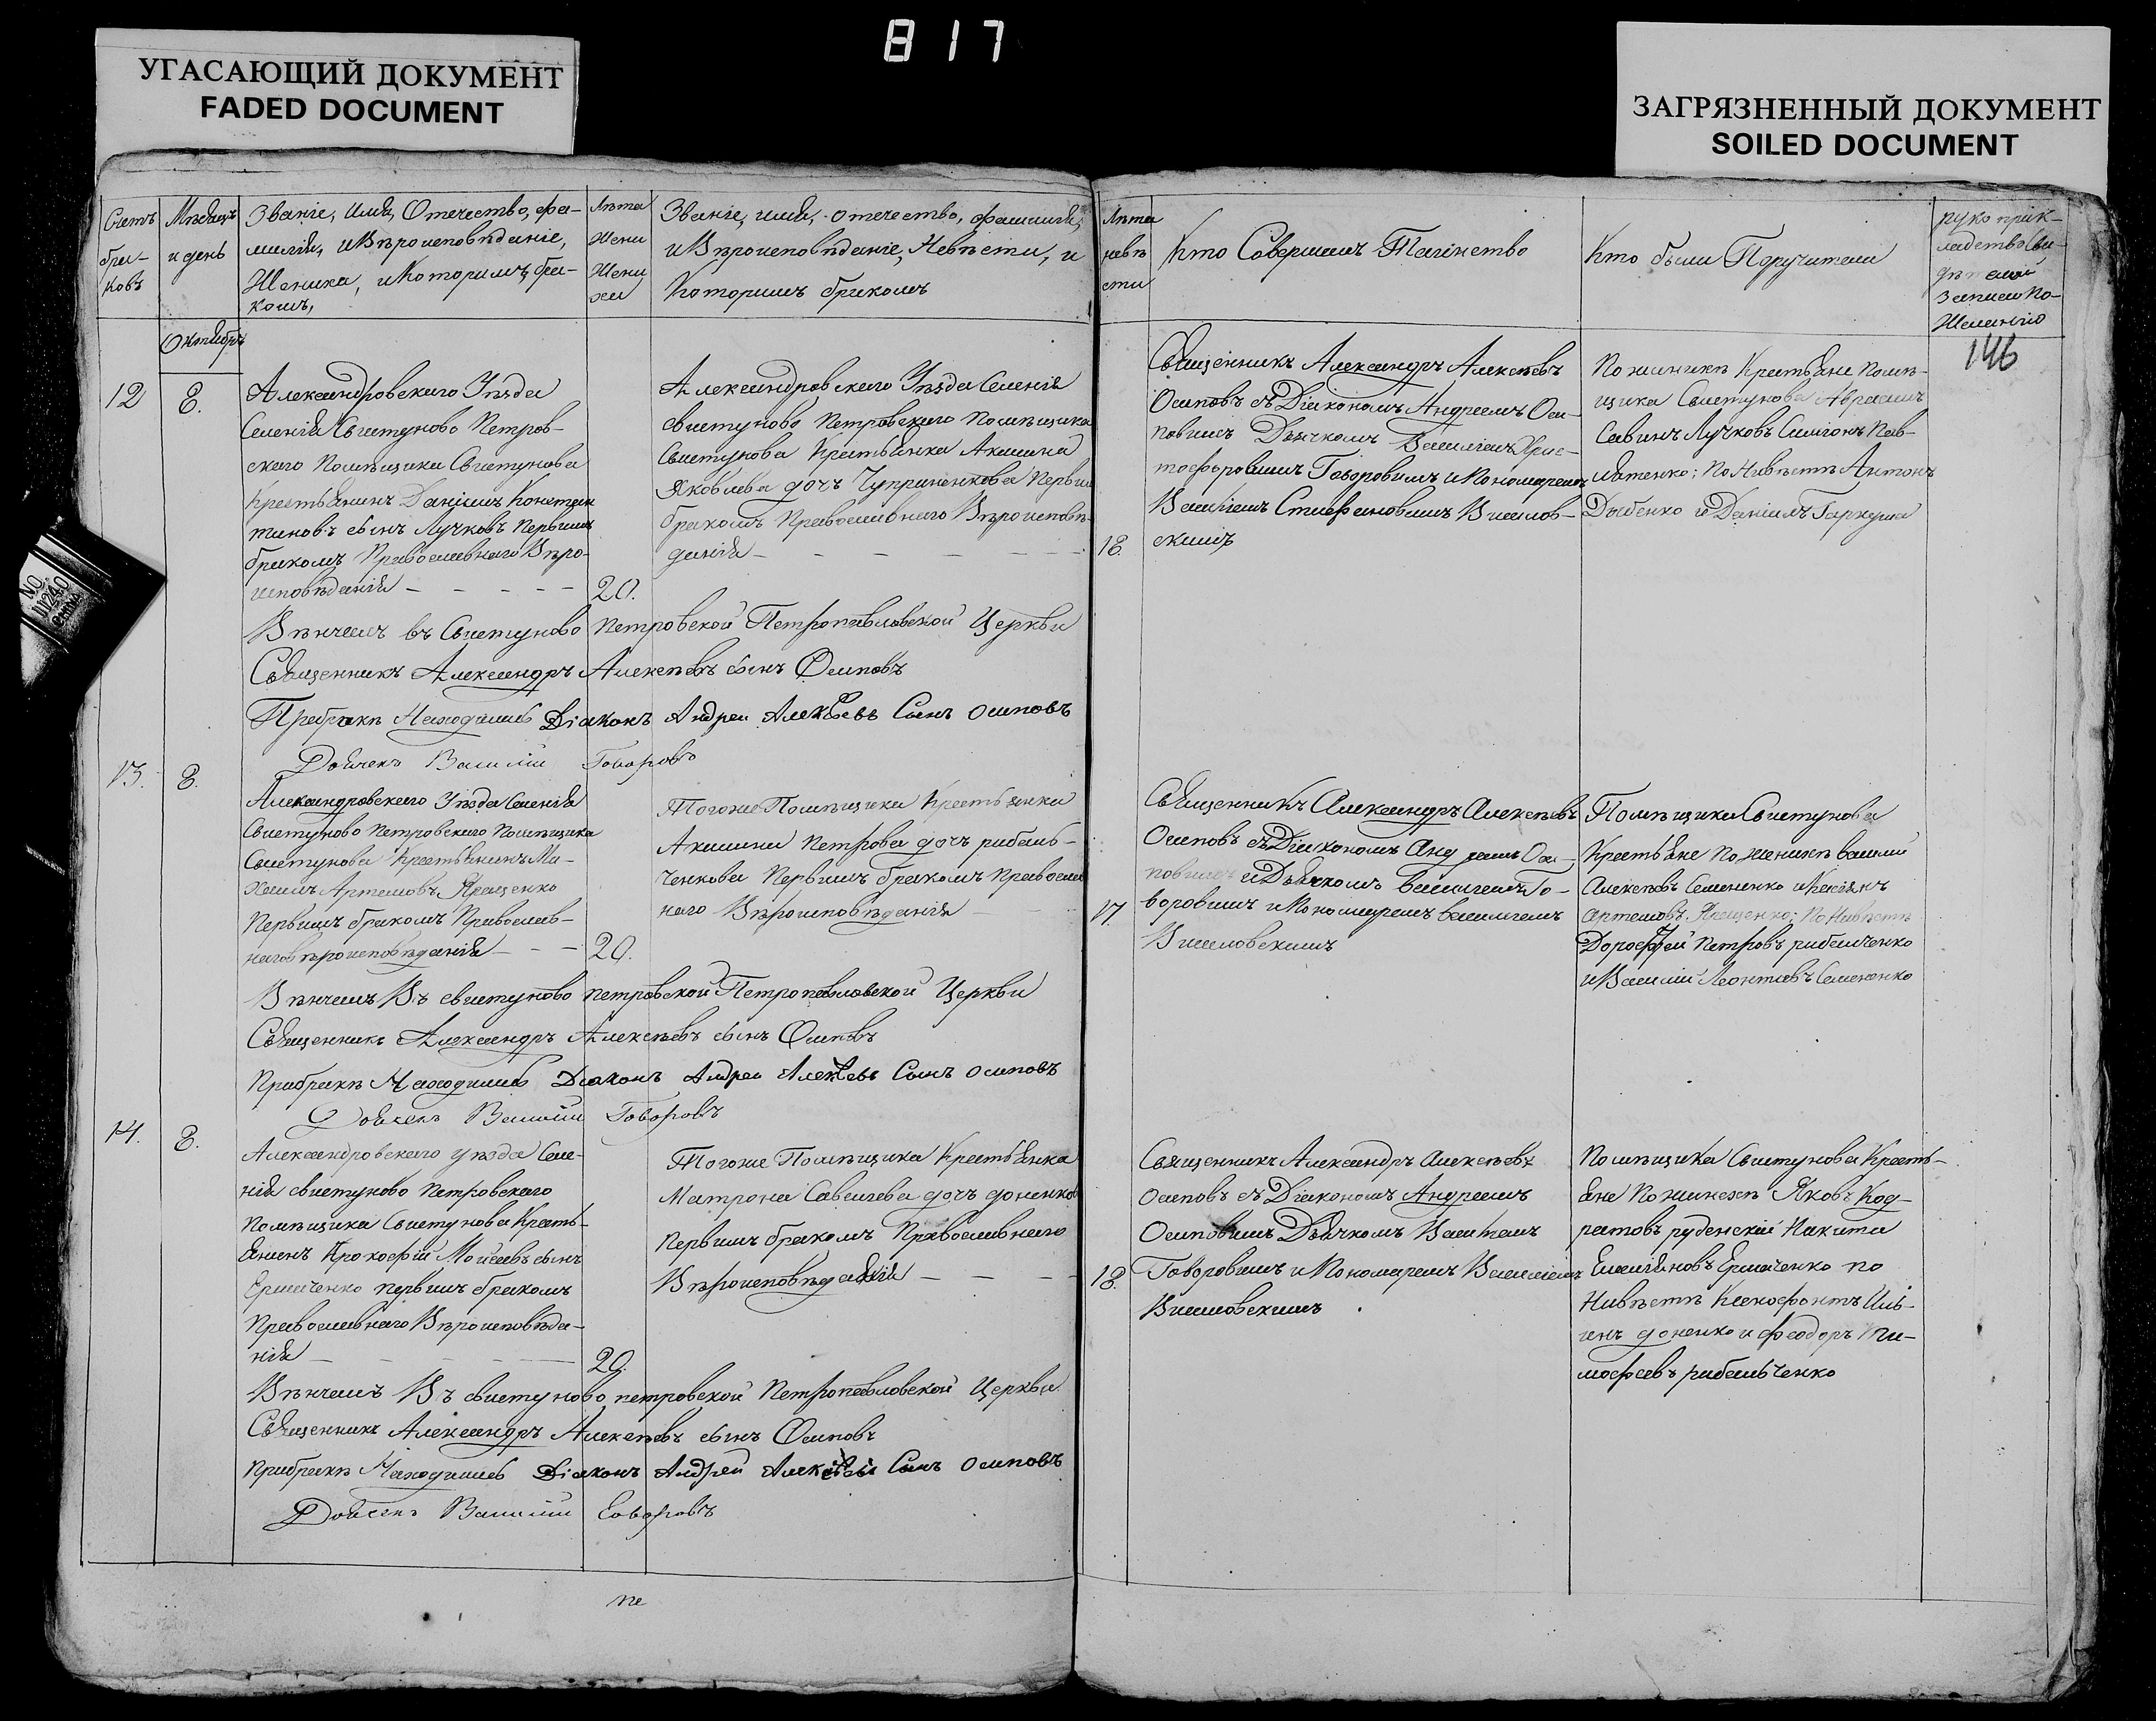 817
УГАСАЮЩИЙ ДОКУМЕНТ
FADED DOCUMENT
ЗАГРЯЗНЕННЫЙ ДОКУМЕНТ
SOILED DOCUMENT
Счетъ бра-ковъ
Мѣсяцъ и день
Званіе, имя, Отечество, фа-
милія, и Вѣроисповѣданіе,
Жениха, и Которимъ бра-
комъ,
Лѣта
Жени
хи
Званіе, имя, отечество, фамилия,
и Вѣроисповѣданіе, Невѣсти, и
Которимъ бракомъ
Лѣта
невѣ
сти
Кто Совершалъ Таинство
Кто были Поручители
рукоприк-
ладство Сви-
дѣтелей
записи По-
Желанію
Октябрь
146
12
8.
Александровского Уѣзда
Селенія Свистуново Петров-
ского Помѣщика Свистунова
Крестьянинъ Даніилъ Констан
тиновъ сынъ Лучковъ Первимъ
бракомъ Православнаго Вѣро-
исповѣданія
20.
Александровского Уѣзда Селенія
свистуново Петровского Помѣщика
Свистунова Крестьянка Акилина
Яковлева дочъ Чуприненкова Первим
бракомъ Православнаго Вѣроисповѣ-
данія
18.
Священникъ Александръ Алексѣевъ
Осиповъ съ Діакономъ Андреемъ Оси-
повимъ Дьячкомъ Василіемъ Хрис-
тофоровимъ Говоровимъ и Пономаремъ
Василіемъ Стефановимъ Вишлов-
скимъ
По женихѣ Крестьяне Помѣ-
щика Свистунова Аврамъ
Савинъ Лучковъ Симіонъ Пав-
лятенко: По Нивѣстѣ Антонъ
Дыбенко и Даніилъ Гаркуша
Вѣнчалъ въ Свистуново Петровской Петропавловской Церкви
Священникъ Александръ Алексѣевъ сынъ Осиповъ
При бракѣ Находились Діаконъ Андреи Алексѣевъ Сынъ Осиповъ
Дьячекъ Василіи Говоровъ
13.
8.
Александровского Уѣзда Селенія
Свистуново Петровского Помѣщика
Свистунова Крестьянинъ Ми-
хаилъ Артемовъ Ященко
Первимъ бракомъ Православ-
наго вѣроисповѣданія
20.
Тогоже Помѣщика Крестьянка
Акилина Петрова дочъ рибаль-
ченкова Первимъ бракомъ Правосла
наго Вѣроисповѣданія
17.
Священникъ Александръ Алексѣевъ
Осиповъ съ Діакономъ Андреемъ Оси-
повимъ и Дьячкомъ Василіемъ Го-
воровимъ и Пономаремъ Василіемъ
Вишловскимъ
Помѣщика Свистунова
Крестьяне По женихѣ василій
Алексѣевъ Семененко и
артемовъ Ященко: По Нивѣстѣ
Дорофей Петровъ рибалченко
и Василіи Леонтіевъ Семененко
Вѣнчалъ Въ свистуново петровской Петропавловской Церкви
Священникъ Александръ Алексѣевъ сынъ Осиповъ
При бракѣ Находились Діаконъ Андреи Алексѣевъ Сынъ Осиповъ
Дьячекъ Василіи Говоровъ
14.
8.
Александровского уѣзда Селе-
нія свистуново Петровского
Помѣщика Свистунова Кресть-
янинъ Прокофій Моисеевъ сынъ
Ермаченко первимъ бракомъ
Православнаго Вѣроисповѣда-
нія
20.
Тогоже Помѣщика Крестьянка
Матрона Савелиева дочъ доненков
Первимъ бракомъ Православнаго
Вѣроисповѣданія
18.
Священникъ Александръ Алексѣевъ
Осиповъ съ Діакономъ Андреемъ
Осиповимъ Дьячкомъ Василіемъ
Говоровимъ и Пономаремъ Василіемъ
Вишловскимъ
Помѣщика Свистунова Кресть-
яне По женихѣ Яковъ Код-
ратовъ руденскій Никита
Емелияновъ Ермаченко по
Нивѣстѣ Ксенофонтъ Иль-
инъ доненко и феодоръ ти-
мофеевъ рибальченко
Вѣнчалъ Въ свистуново петровской Петропавловской Церкви
Священникъ Александръ Алексѣевъ сынъ Осиповъ
При бракѣ Находились Діаконъ Андреи Алексѣевъ Сынъ Осиповъ
Дьячекъ Василіи Говоровъ